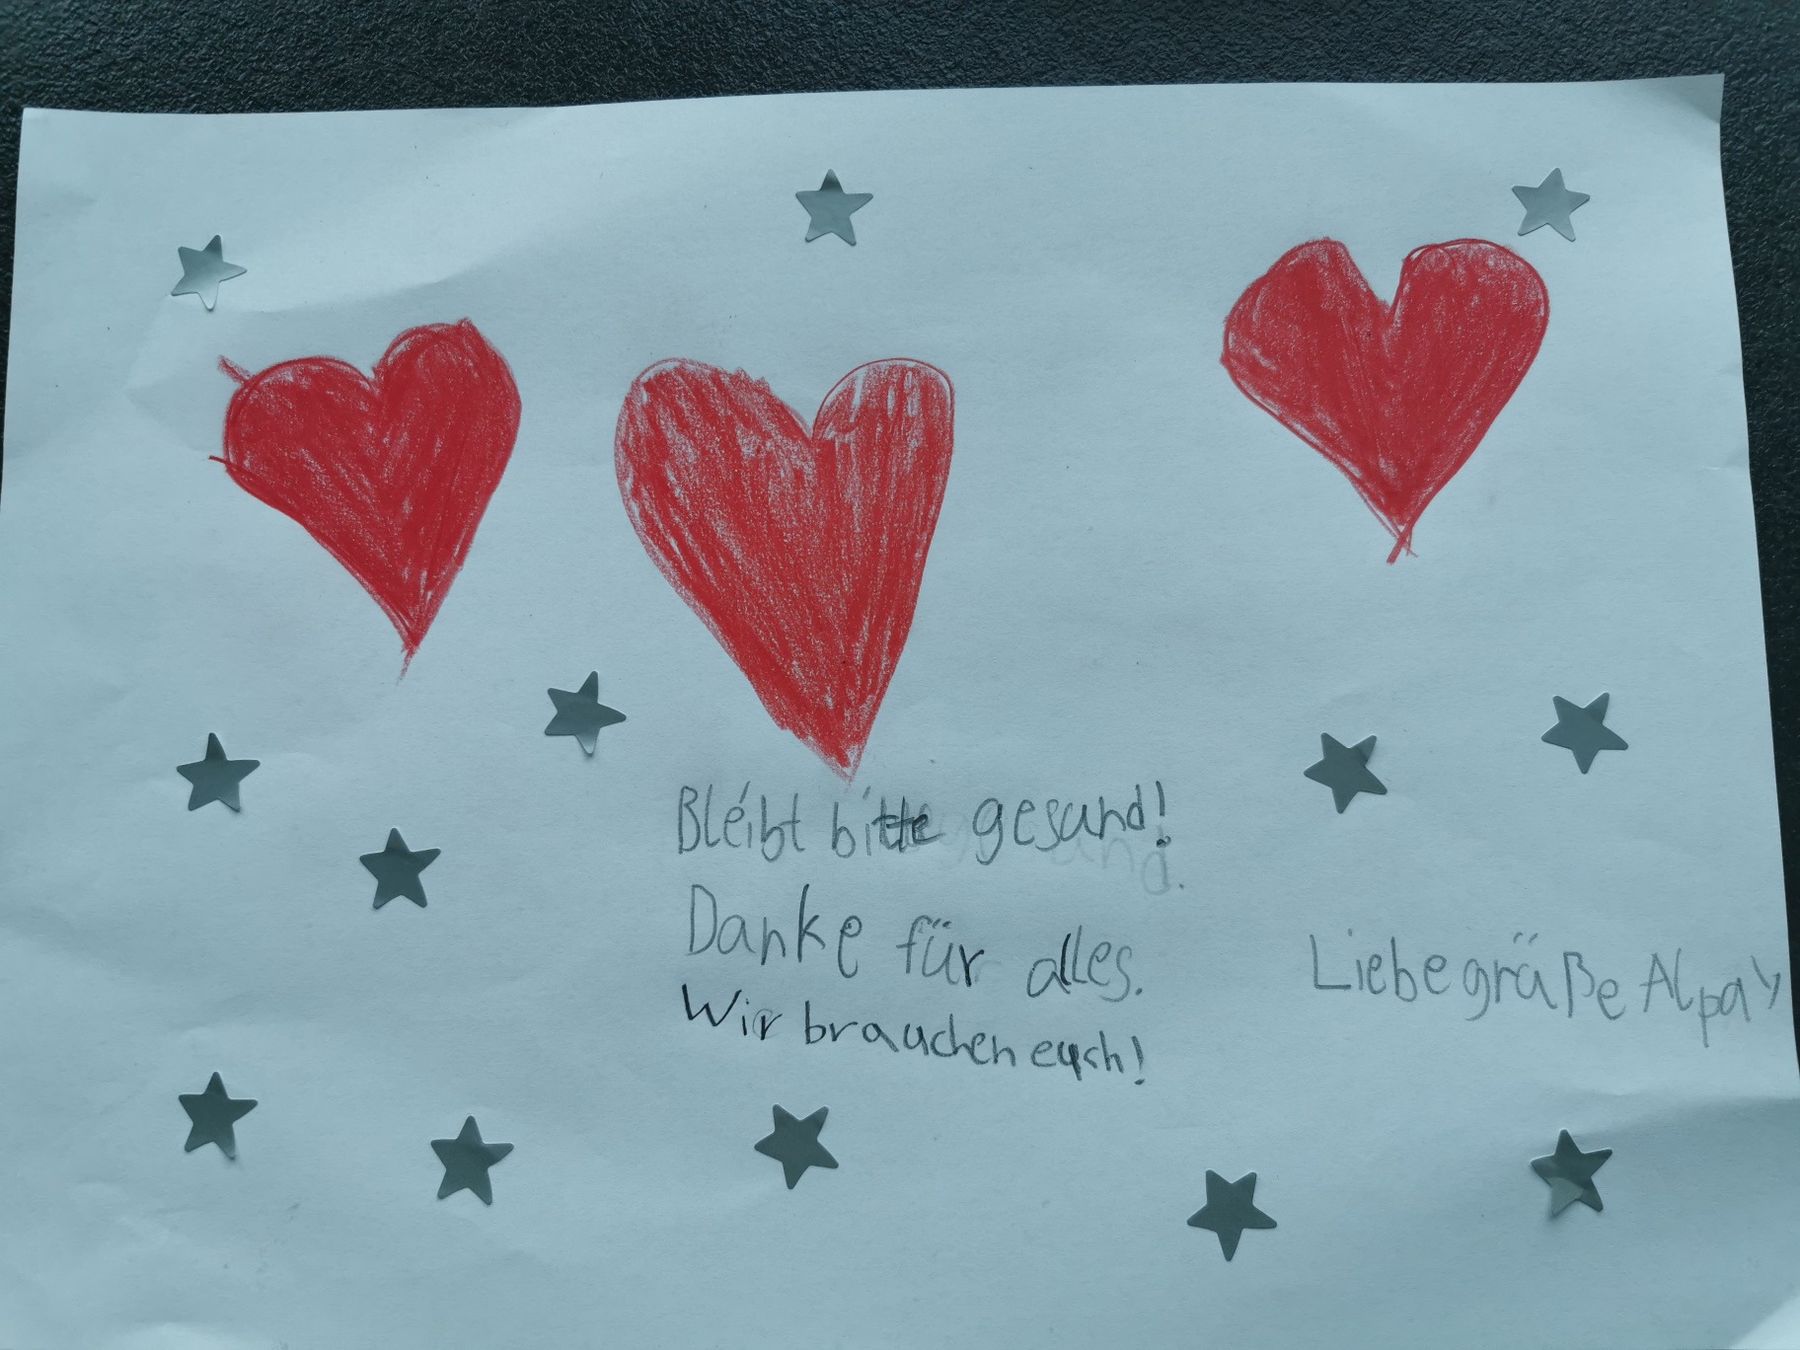 Bleibt bitte gesund!
Danke für alles.
Wir brauchen euch!
Liebe gräße Alpay